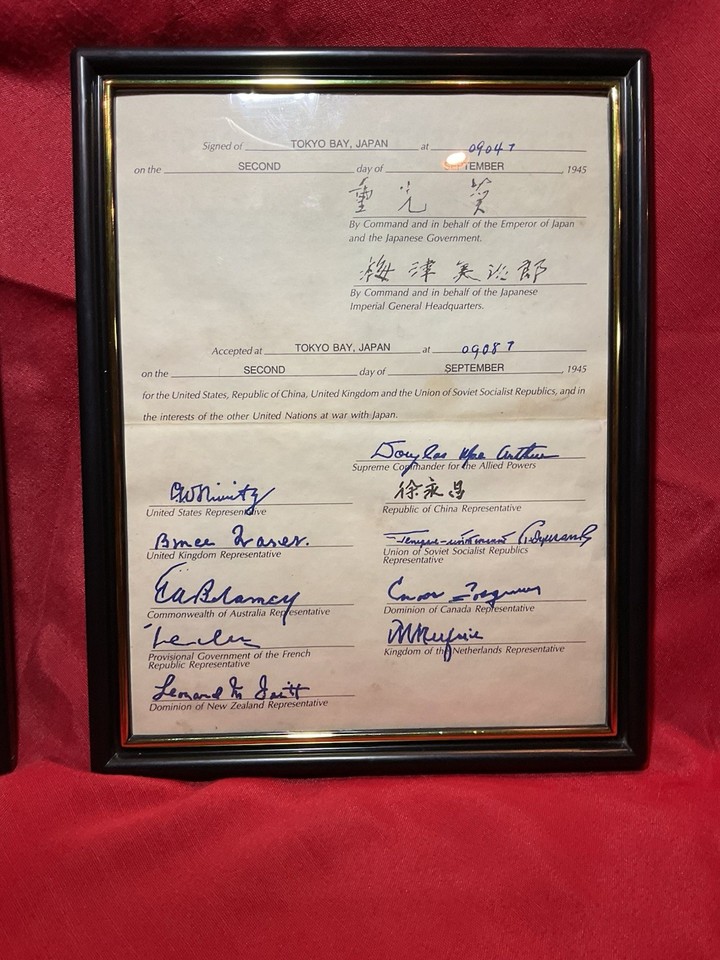 Signed of TOKYO BAY, JAPAN at 0904 I
on the SECOND day of SEPTEMBER, 1945
重光 葵
By Command and in behalf of the Emperor of Japan
and the Japanese Government.
梅津美治郎
By Command and in behalf of the Japanese
Imperial General Headquarters.
Accepted at TOKYO BAY, JAPAN at 0908 I
on the SECOND day of SEPTEMBER, 1945
for the United States, Republic of China, United Kingdom and the Union of Soviet Socialist Republics, and in
the interests of the other United Nations at war with Japan.
Douglas MacArthur
Supreme Commander for the Allied Powers
C.W. Nimitz
United States Representative
徐永昌
Republic of China Representative
Bruce Fraser.
United Kingdom Representative
Union of Soviet Socialist Republics
Representative
T.A. Blamey
Commonwealth of Australia Representative
Dominion of Canada Representative
Provisional Government of the French
Republic Representative
Kingdom of the Netherlands Representative
Leonard M Isitt
Dominion of New Zealand Representative